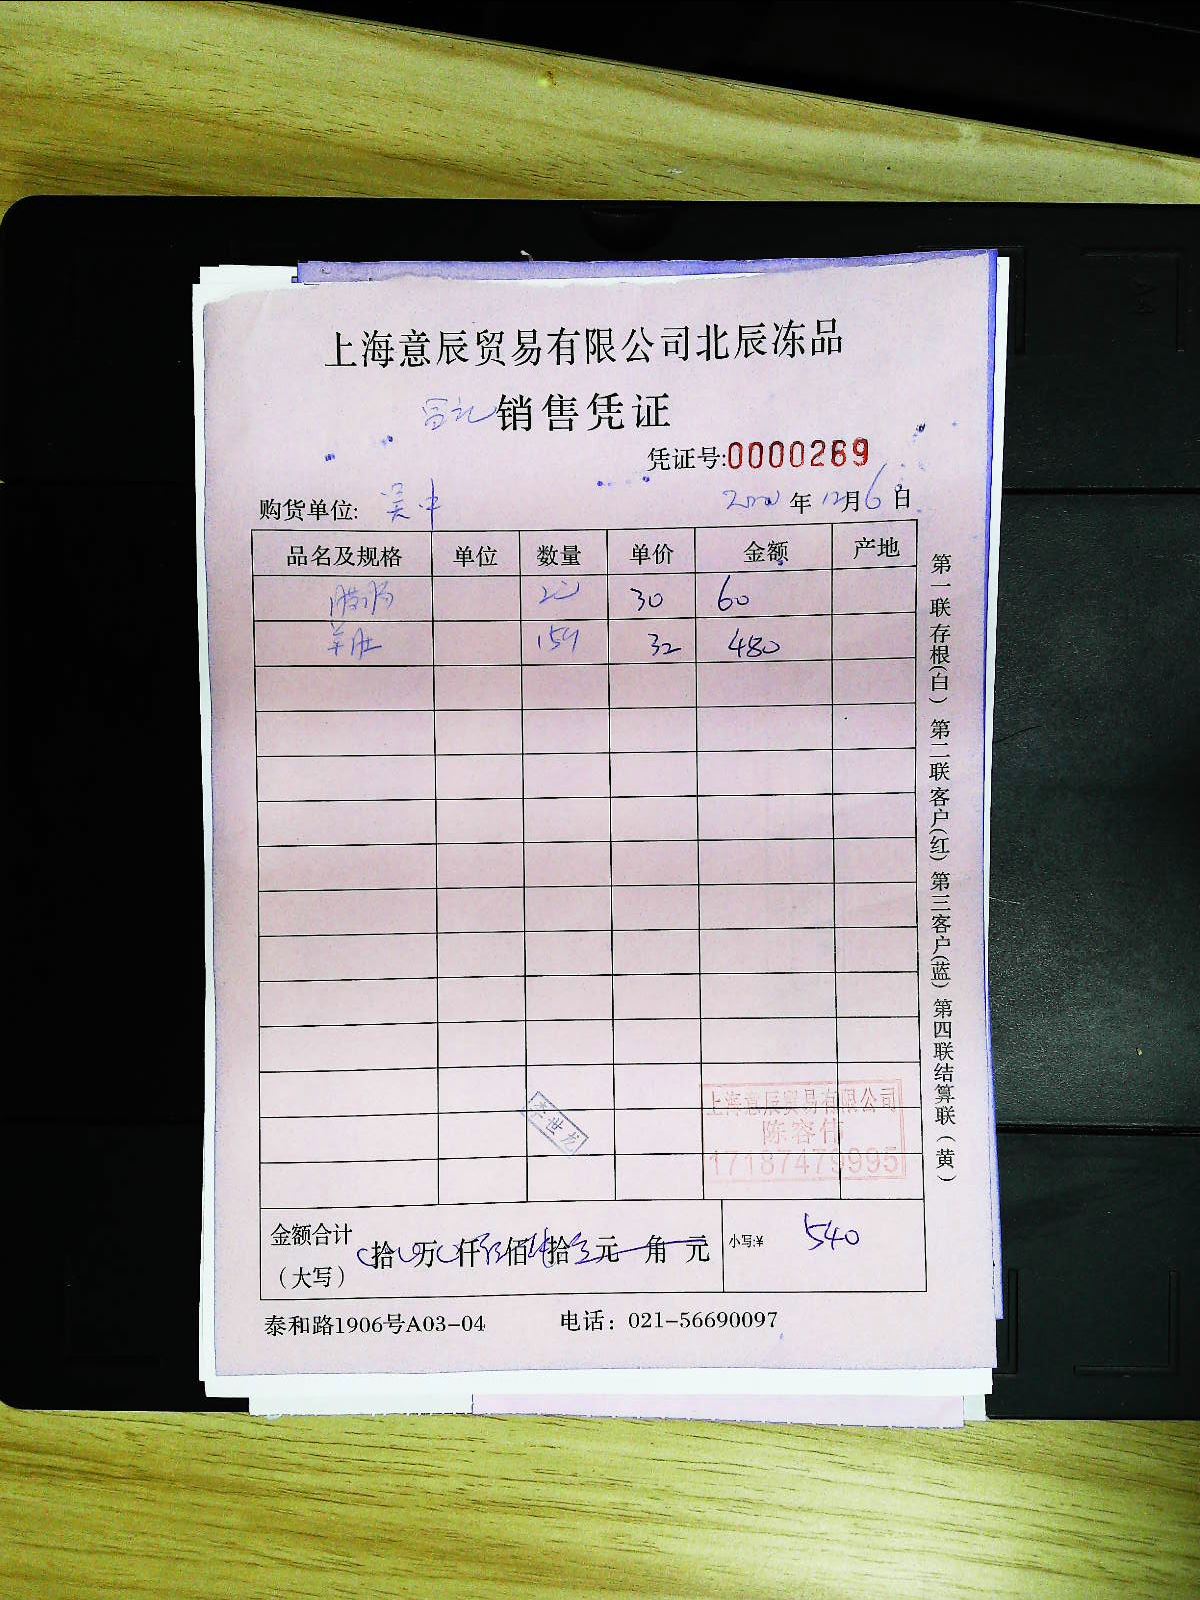 上海意辰贸易有限公司北辰冻品
销售凭证
凭证号:0000269
购货单位: 吴中 年 12月6日
品名及规格 单位 数量 单价 金额 产地
腊肠 30 60
羊肚 32 480
上海意辰贸易有限公司
陈容伟
17187479995
李世龙
金额合计（大写） 拾 万 仟 佰 拾 元 角 元 小写:¥ 540
泰和路1906号A03-04 电话：021-56690097
第一联存根(白) 第二联客户(红) 第三客户(蓝) 第四联结算联(黄)